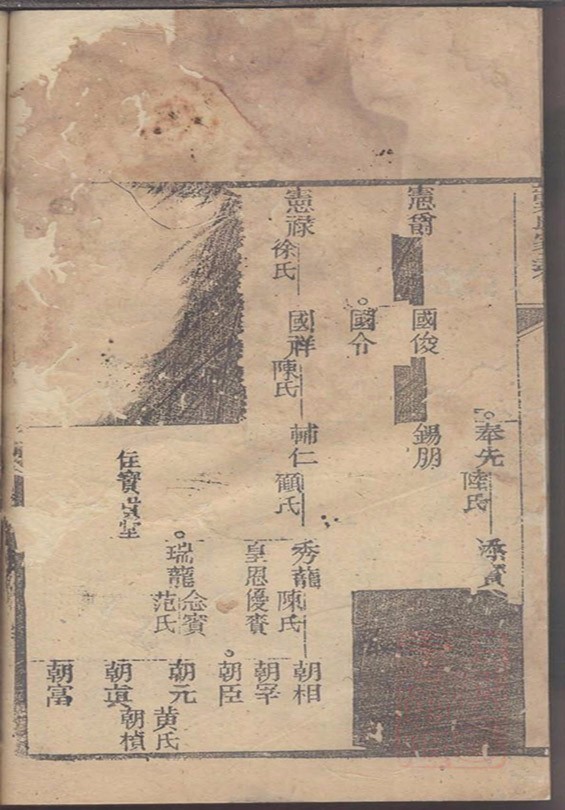 奉先
陸氏
憲爵
國俊
錫朋
國令
憲祿
徐氏
國祥
陳氏
輔仁
顧氏
秀龍
陳氏
皇恩優賚
朝相
朝宰
朝臣
瑞龍
念賓
范氏
朝元
黄氏
朝真
朝楨
朝富